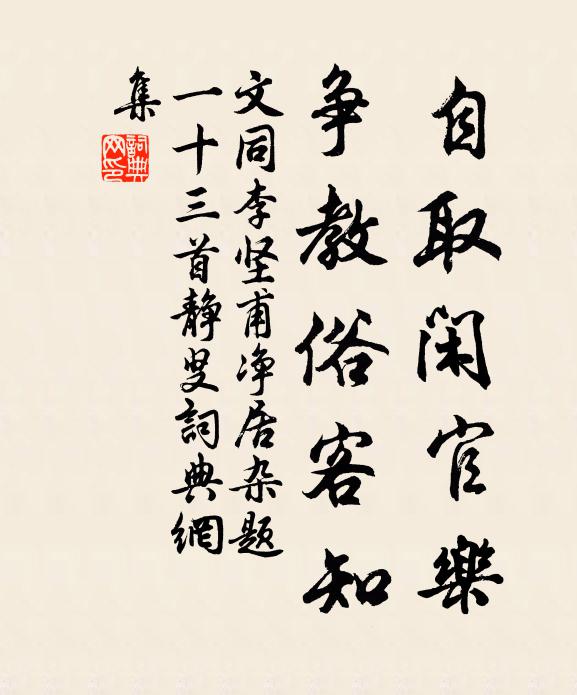 自取闲官樂
争教俗客知
文同李坚甫净居杂题
一十三首静叟詞典網
集
詞典網印